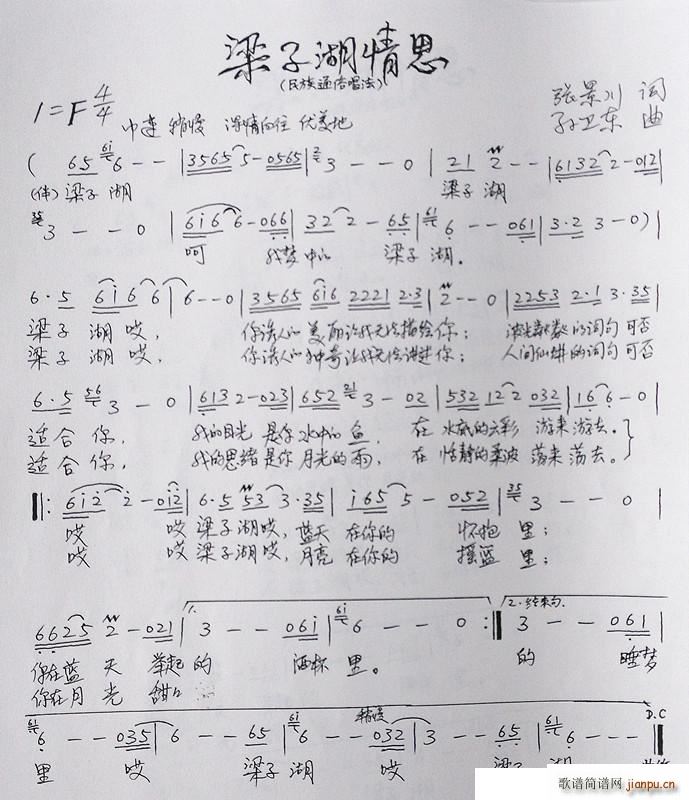 梁子湖情思
(民族通俗唱法)
1=F 4/4
中速 稍慢 深情向往 优美地
张景川 词
孙卫东 曲
( 65 6i 6 - - | 3565 5 - 0565 | 2 3 - - 0 | 21 2 - - | 6132 2 - 012 |
(伴) 梁子湖 梁子湖
3 - - 0 | 6i6 6 - 066 | 32 2 - 65 | 61 6 - - 061 | 3·2 3 - 0) |
呵 我梦中的 梁子湖.
6·5 6i6 6 | 6 - - 0 | 3565 6i6 2221 2·3 | 2 - - 0 | 2253 2·1 3·35 |
梁子湖哎, 你诱人的美丽让我无法描绘你; 的词句可否
梁子湖哎, 你诱人的神奇让我无法讲述你; 人间仙妹的词句可否
6·5 56 3 - 0 | 6132 2 - 023 | 652 21 3 - 02 | 532 12 2 032 | 16 6 - 0 |
适合你, 我的目光是你水中的鱼, 在水底的云彩游来游去.
适合你, 我的思绪是你月光的雨, 在恬静的柔波荡来荡去.
‖: 6i2 2 - 0i2 | 6·5 53 3·35 | i65 5 - 052 | 35 3 - - 0 |
哎 哎梁子湖哎, 蓝天在你的怀抱里;
哎 哎梁子湖哎, 月亮在你的摇篮里;
6625 2 - 021 | 1. 3 - - 06i | 6i 6 - - 0 :‖ 2.结束句. 3 - - 061 |
你在蓝天举起的 酒杯里。 的 睡梦
你在月光甜
61 6 - - 035 | 6 - - 65 | 6i 6 - - 032 | 3 - - 65 | 61 6 - - - ‖
稍慢
D.C
里 哎 梁子湖 哎 梁子湖
歌谱简谱网
jianpu.cn